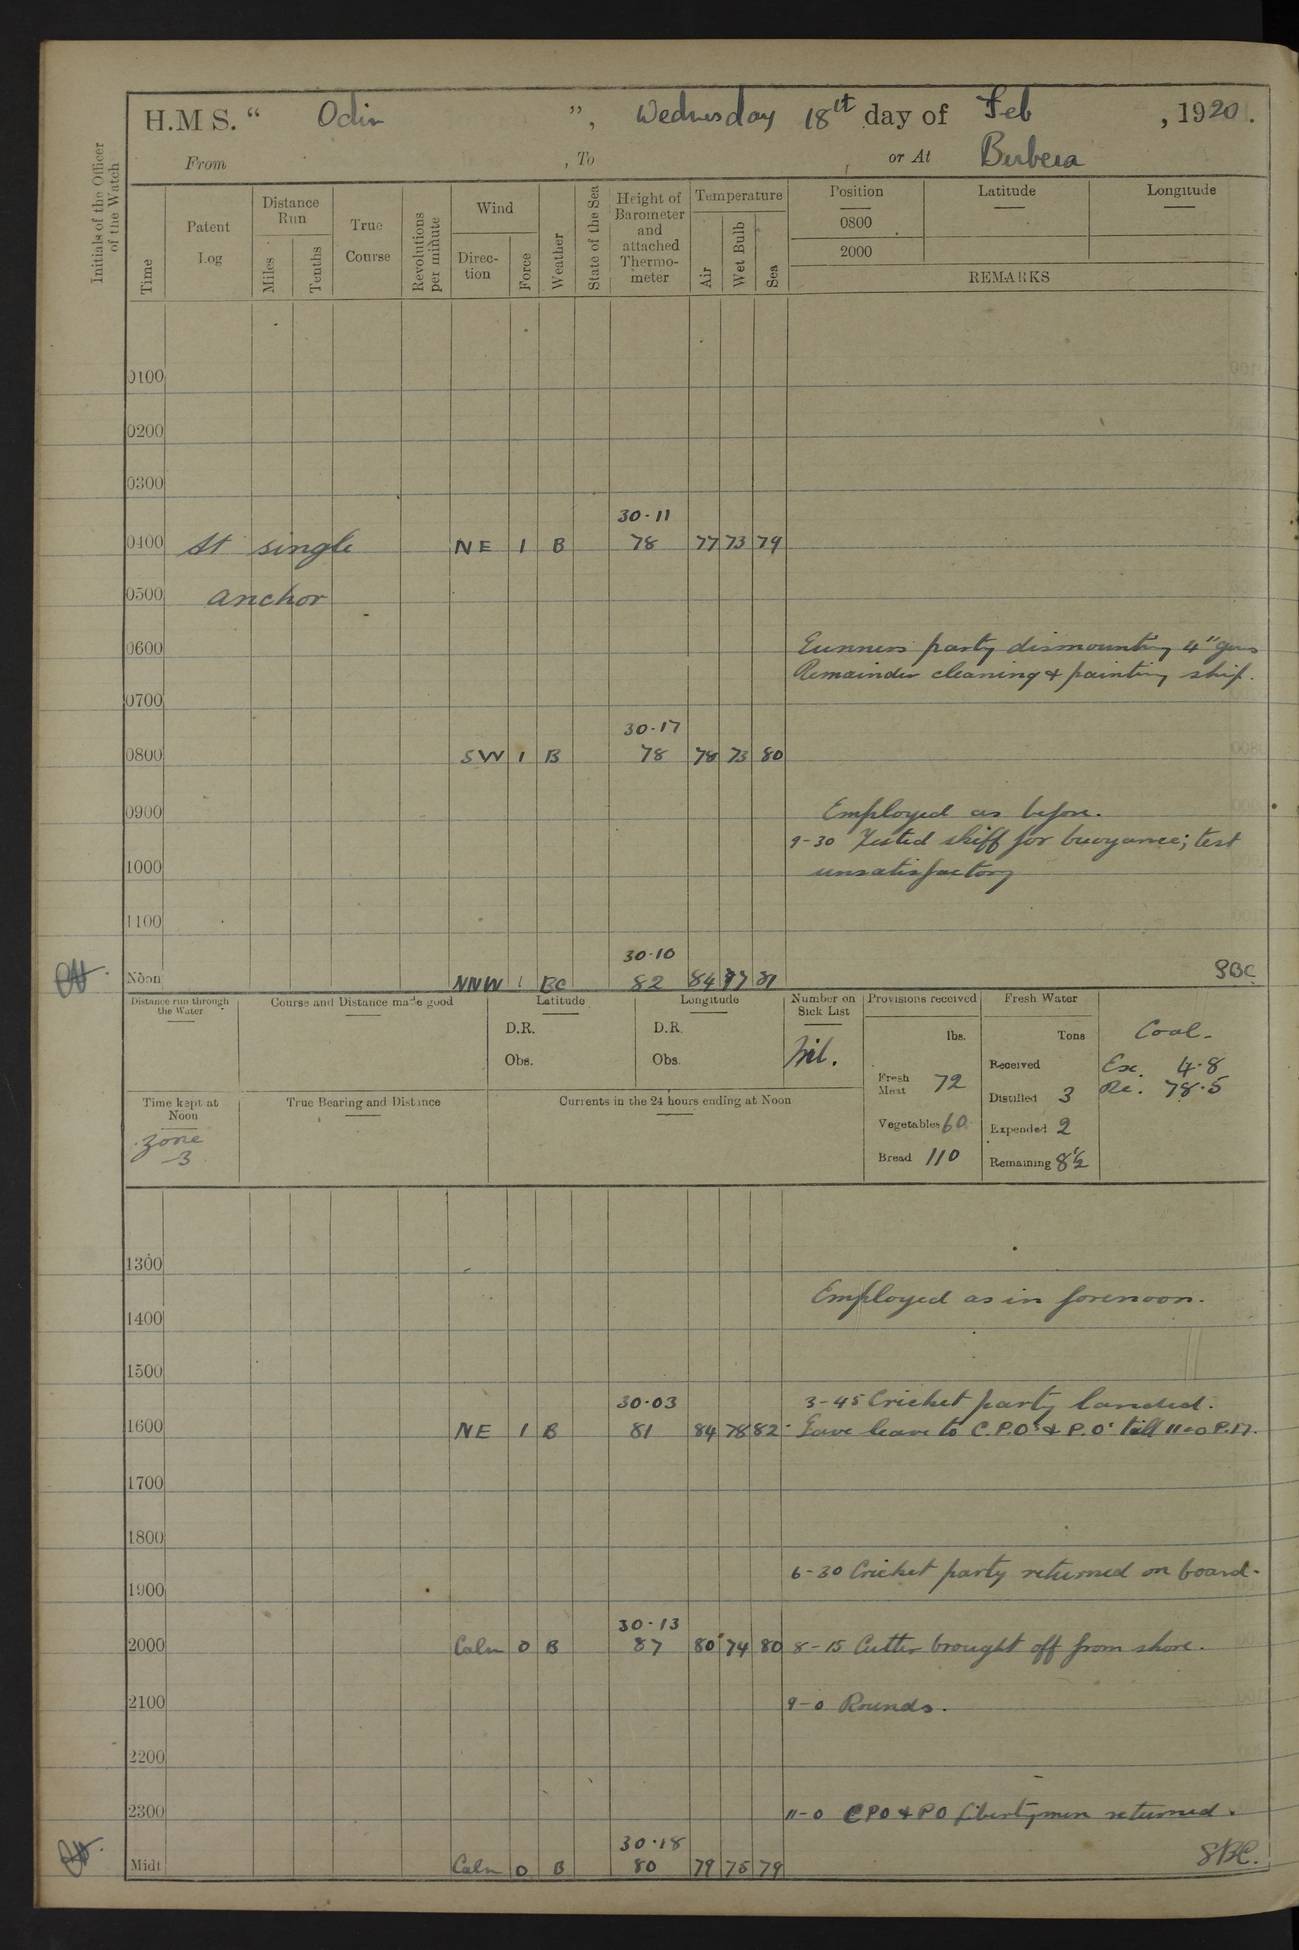 H.M S. “ Odin ”, Wednesday 18th day of Feb , 1920.
From , To or At Berbera
Initials of the Officer of the Watch
Time
Patent Log
Distance Run
Miles
Tenths
True Course
Revolutions per minute
Wind
Direc-tion
Force
Weather
State of the Sea
Height of Barometer and attached Thermo-meter
Temperature
Air
Wet Bulb
Sea
Position Latitude Longitude
0800
2000
REMARKS
0100
0200
0300
30·11
0400 At single NE 1 B 78 77 73 79
0500 anchor
0600 Gunners party dismounting 4" guns
Remainder cleaning & painting ship.
0700
30·17
0800 SW 1 B 78 78 73 80
0900 Employed as before.
9-30 Tested skiff for buoyance; test
1000 unsatisfactory
1100
30·10
Noon NNW 1 BC 82 84 77 81 SBC
Distance run through the Water
Course and Distance made good
Latitude
D.R.
Obs.
Longitude
D.R.
Obs.
Number on Sick List
Nil.
Provisions received
lbs.
Fresh Meat 72
Vegetables 60
Bread 110
Fresh Water
Tons
Received
Distilled 3
Expended 2
Remaining 8½
Coal.
Ex. 4·8
Re. 78·5
Time kept at Noon
Zone
-3
True Bearing and Distance
Currents in the 24 hours ending at Noon
1300
Employed as in forenoon.
1400
1500
30·03 3-45 Cricket party landed.
1600 NE 1 B 81 84 78 82 Gave leave to C.P.Os & P.Os till 11-0 P.M.
1700
1800
6-30 Cricket party returned on board.
1900
30·13
2000 Calm 0 B 87 80 74 80 8-15 Cutter brought off from shore.
2100 9-0 Rounds.
2200
2300 11-0 CPO & PO libertymen returned.
30·18
Midt Calm 0 B 80 79 75 79 SBC.